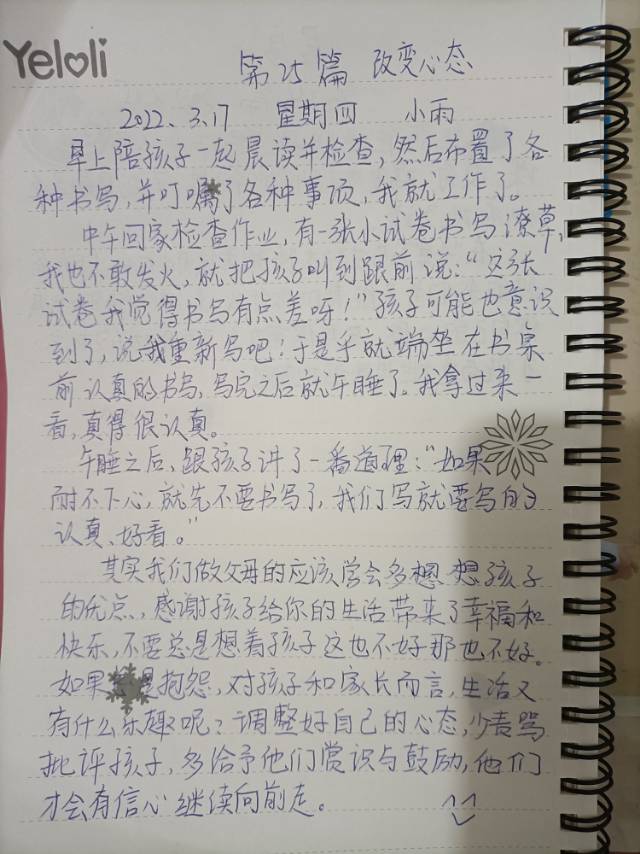 Yeloli
第25篇 改变心态
2022.3.17 星期四 小雨
早上陪孩子一起晨读并检查,然后布置了各
种书写,并叮嘱了各种事项,我就工作了。
中午回家检查作业,有一张小试卷书写潦草,
我也不敢发火,就把孩子叫到跟前说:“这张
试卷我觉得书写有点差呀!”孩子可能也意识
到了,说我重新写吧!于是乎就端坐在书桌
前认真的书写,写完之后就午睡了。我拿过来一
看,真得很认真。
午睡之后、跟孩子讲了一番道理:“如果
耐不下心,就先不要书写了,我们写就要写的
认真、好看。”
其实我们做父母的应该学会多想想孩子
的优点,感谢孩子给你的生活带来了幸福和
快乐,不要总是想着孩子这也不好那也不好。
如果总是抱怨,对孩子和家长而言,生活又
有什么乐趣呢?调整好自己的心态,少责骂
批评孩子,多给予他们赏识与鼓励,他们
才会有信心继续向前走。